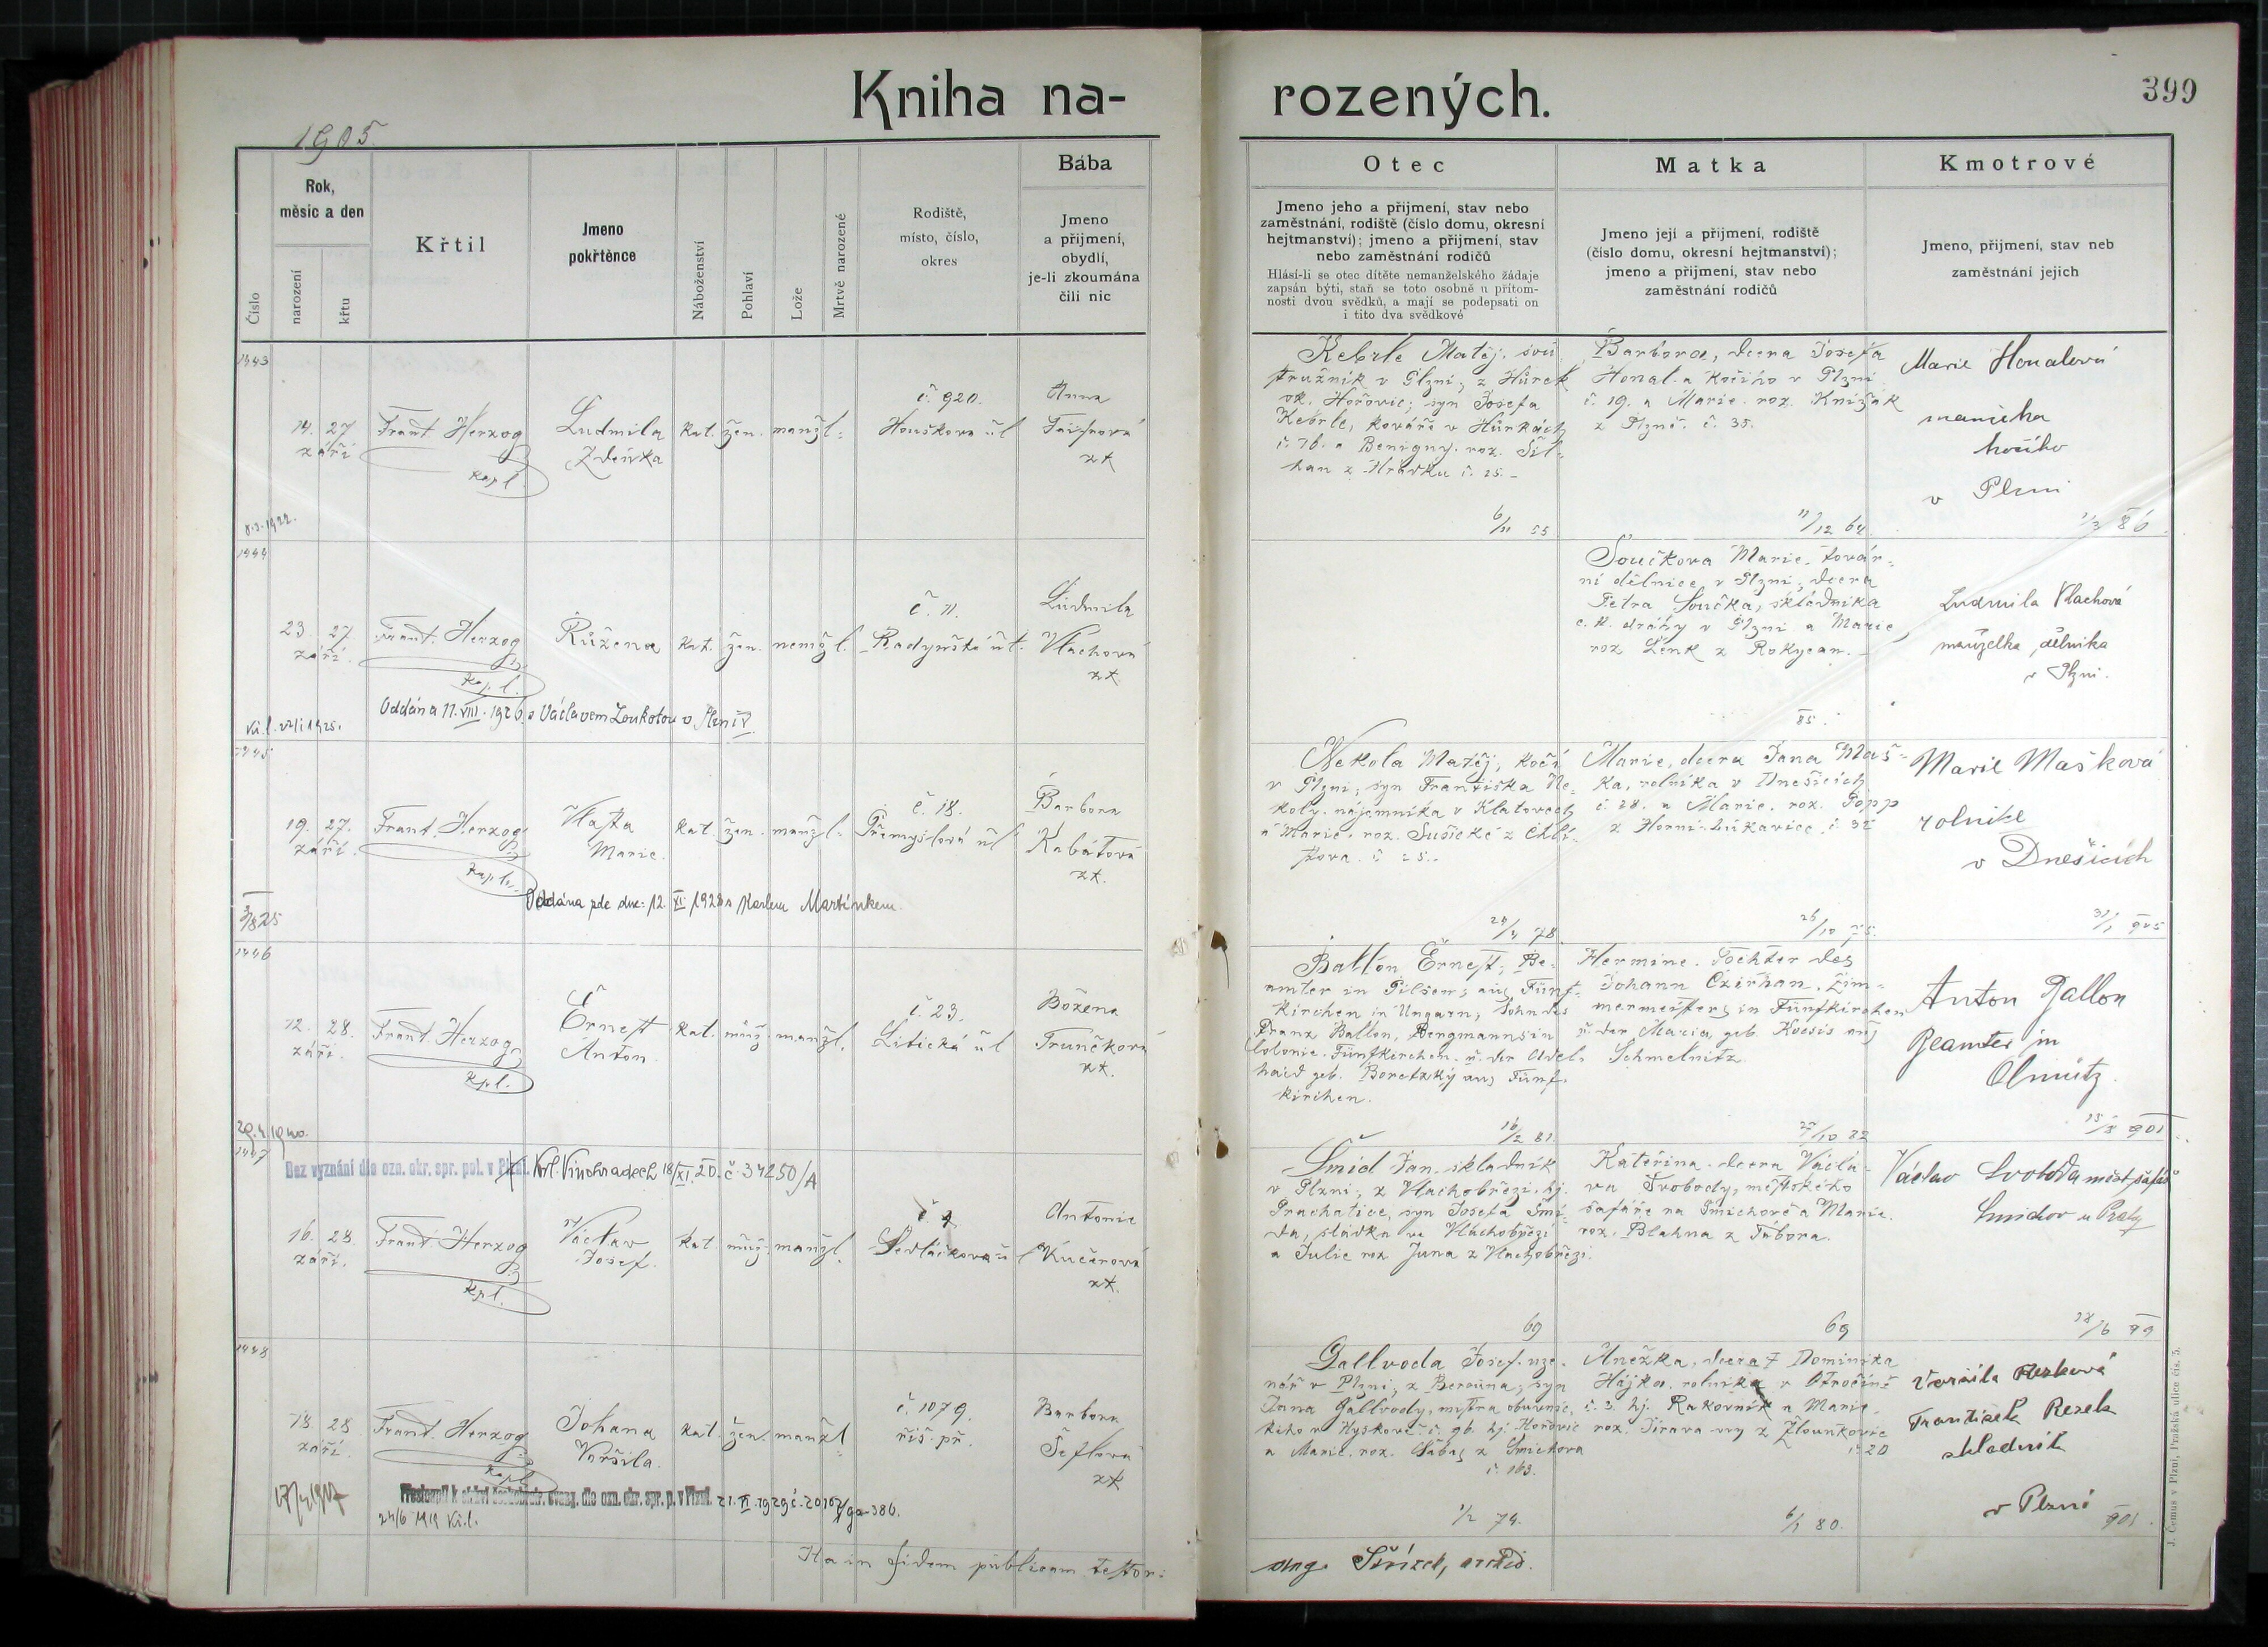 Kniha na-
rozených.
399
1905
Číslo
Rok,
měsíc a den
narození
křtu
Křtil
Jmeno
pokřtěnce
Náboženství
Pohlaví
Lože
Mrtvě narozené
Rodiště,
místo, číslo,
okres
Bába
Jmeno
a přijmení,
obydlí,
je-li zkoumána
čili nic
Otec
Jmeno jeho a přijmení, stav nebo
zaměstnání, rodiště (číslo domu, okresní
hejtmanství); jmeno a přijmení, stav
nebo zaměstnání rodičů
Hlásí-li se otec dítěte nemanželského žádaje
zapsán býti, staň se toto osobně u přítom-
nosti dvou svědků, a mají se podepsati on
i tito dva svědkové
Matka
Jmeno její a přijmení, rodiště
(číslo domu, okresní hejtmanství);
jmeno a přijmení, stav nebo
zaměstnání rodičů
Kmotrové
Jmeno, přijmení, stav neb
zaměstnání jejich
1443
14. 27.
září
Frant. Herzog
kapl.
Ludmila
Zdeňka
kat. žen. manžl.
č. 920.
Houškova ul
Anna
zk
Kebrle Matěj, sou
stružník v Plzni, z Hůrek
ok. Hořovic; syn Josefa
Kebrle, kováře v Hůrkách
č. 76. a Benigny. roz. Šil-
han z Hrádku č. 25.
6/11 55
Barbora, dcera Josefa
Honal a kočího v Plzni
č. 19. a Marie. roz. Knižák
z Plzně. č. 35.
11/12 64
Marie Honalová
manželka
kočího
v Plzni
1/3 86
8.3.1922.
1444
23. 27.
září.
Frant. Herzog
kapl.
Růžena
kat. žen. nemžl.
č. 11.
Radyňská ul.
Ludmila
Vlachová
zk.
Součkova Marie. továr-
ní dělnice v Plzni, dcera
Petra Součka, skladníka
c. k. dráhy v Plzni a Marie
roz Lenk z Rokycan.
85.
Ludmila Vlachová
manželka dělníka
v Plzni.
Oddána 11. VIII. 1926. s Václavem Loukotou v Plzni V
1445
19. 27.
září.
Frant. Herzog
kapl.
Vlasta
Marie.
kat. žen. manžl.
č. 18.
Přemyslová ul
Barbora
Kabátová
zk.
Nekola Matěj, kočí
v Plzni, syn Františka Ne-
koly. nájemníka v Klatovech
a Marie. roz. Sušické z Chlí-
stova. č 25.
24/4 78
Marie, dcera Jana Maš-
ka, rolníka v Dnešicích
č. 28. a Marie. roz. Popp
z Horní-Lukavice č. 32
26/10 75.
Marie Mašková
rolnice
v Dnešicích
31/1 905
Oddána pde dne: 12. XI 1928 s Karlem Martínkem.
3/8 25
1446
12. 28.
září.
Frant. Herzog
kpl.
Ernest
Anton.
kat. muž. manžl.
č. 23.
Litická ul
Božena
Trunečková
zk.
Ballon Ernest, Be-
amter in Pilsen; aus Fünf-
kirchen in Ungarn, Sohn des
Franz Ballon, Bergmanns in
Colonie. Fünfkirchen. u. der Adel-
haid geb. Boretzký aus Fünf-
kirchen.
16/2 81.
Hermine. Tochter des
Johann Czirhan. Zim-
mermeisters in Fünfkirchen
u. der Maria, geb. Kocsis aus
Schmelnitz.
27/10 82
Anton Ballon
Beamter in
Olmütz.
15/8 901
1447
Bez vyznání dle ozn. okr. spr. pol. v Plzni. Král. Vinohradech 18/XI. 20. č. 34250/A
16. 28
září.
Frant. Herzog
kpl.
Václav
Josef.
kat. muž. manžl.
Sedláčkova u
Antonie
Kučerová
zk.
Šmíd Jan skladník
v Plzni, z Vlachobřezi. hj.
Prachatice, syn Josefa Šmí-
da, sládka ve Vlachobřezi
a Julie roz Juna z Vlachobřezi.
69
Kateřina. dcera Václa-
va Svobody, městského
šafáře na Smíchově a Marie.
roz. Blahna z Tábora.
69
Václav Svoboda měst. šafář
Smíchov u Prahy
1448
18 28
září.
Frant. Herzog
kapl.
Johana
Voršila.
kat. žen. manžl
č. 1079.
říš. př.
Barbora
Šeflová
zk
Gallvoda Josef. uze-
nář v Plzni, z Berouna, syn
Jana Gallvody, mistra obuvnic-
kého v Hyskově č. 96 hj. Hořovic
a Marie. roz. Sábas z Smíchova
č. 163.
1/2 74.
Anežka, dcera † Dominika
Hájka. rolníka v Otročině
č. 3. hj. Rakovník a Marie
roz. Jirava vry z Žlounkovic
č. 20
6/1 80.
Voršila Rezková
František Rezek
skladník
v Plzni
901.
Přestoupil k církvi českobratr. evang. dle ozn. okr. spr. p. v Plzni. 21. VI. 1929 č.
24/6 1919
Ita in fidem publicam testor:
Aug. Širízek, archid.
J. Čemus v Plzni, Pražská ulice čís. 5.